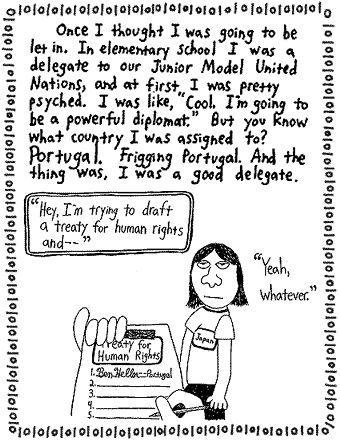 Once I thought I was going to be
let in. In elementary school I was a
delegate to our Junior Model United
Nations, and at first, I was pretty
psyched. I was like, "Cool. I'm going to
be a powerful diplomat." But you know
what country I was assigned to?
Portugal. Frigging Portugal. And the
thing was, I was a good delegate.
"Hey, I'm trying to draft
a treaty for human rights
and--"
"Yeah,
whatever."
Japan
Treaty for
Human Rights
1. Ben Heller--Portugal
2.
3.
4.
5.